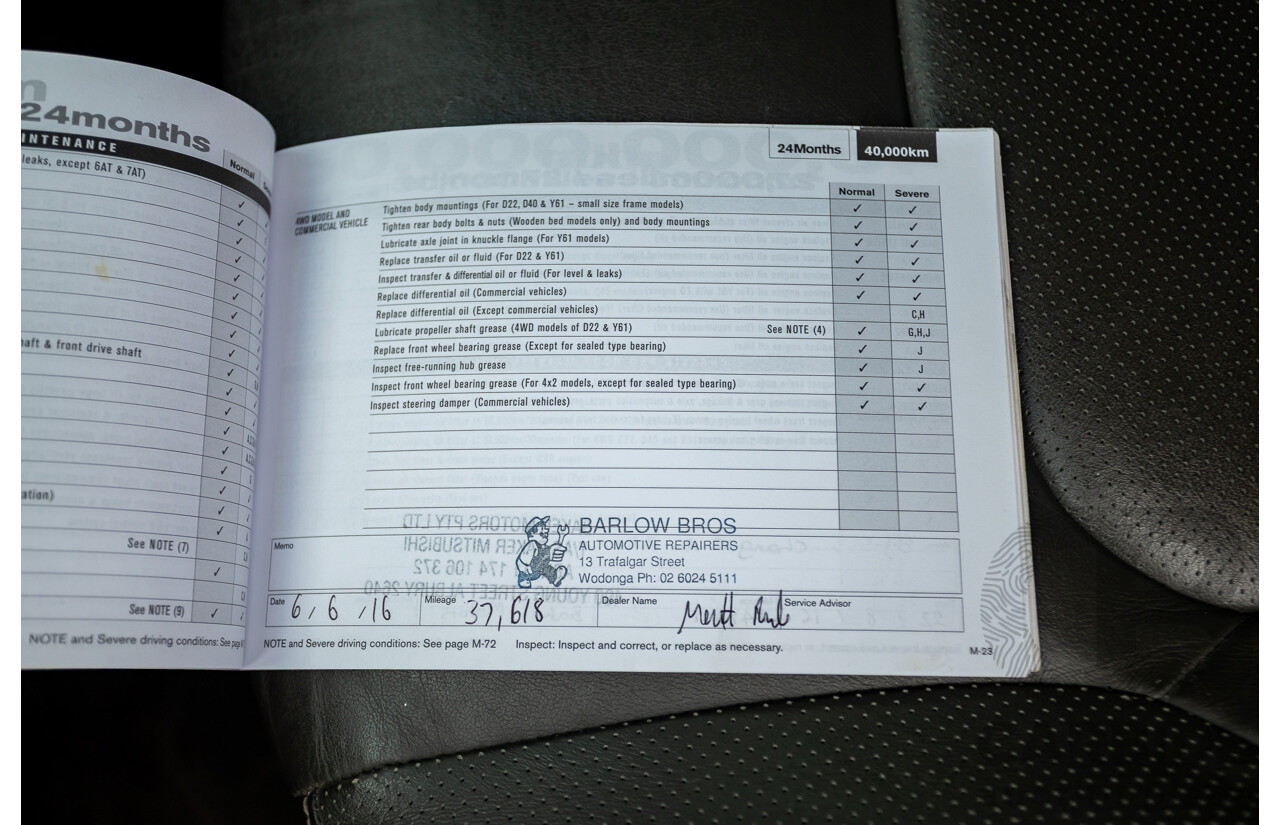 24months
INTENANCE
leaks, except 6AT & 7AT)
Normal
haft & front drive shaft
ation)
See NOTE (7)
See NOTE (9)
NOTE and Severe driving conditions: See page
24Months
40,000km
Normal Severe
4WD MODEL AND
COMMERCIAL VEHICLE
Tighten body mountings (For D22, D40 & Y61 – small size frame models) ✓ ✓
Tighten rear body bolts & nuts (Wooden bed models only) and body mountings ✓ ✓
Lubricate axle joint in knuckle flange (For Y61 models) ✓ ✓
Replace transfer oil or fluid (For D22 & Y61) ✓ ✓
Inspect transfer & differential oil or fluid (For level & leaks) ✓ ✓
Replace differential oil (Commercial vehicles) ✓ ✓
Replace differential oil (Except commercial vehicles) C,H
Lubricate propeller shaft grease (4WD models of D22 & Y61) See NOTE (4) ✓ G,H,J
Replace front wheel bearing grease (Except for sealed type bearing) ✓ J
Inspect free-running hub grease ✓ J
Inspect front wheel bearing grease (For 4x2 models, except for sealed type bearing) ✓ ✓
Inspect steering damper (Commercial vehicles) ✓ ✓
Memo
BARLOW BROS
AUTOMOTIVE REPAIRERS
13 Trafalgar Street
Wodonga Ph: 02 6024 5111
Date 6 / 6 / 16 Mileage 37,618 Dealer Name Service Advisor
NOTE and Severe driving conditions: See page M-72 Inspect: Inspect and correct, or replace as necessary.
M-23